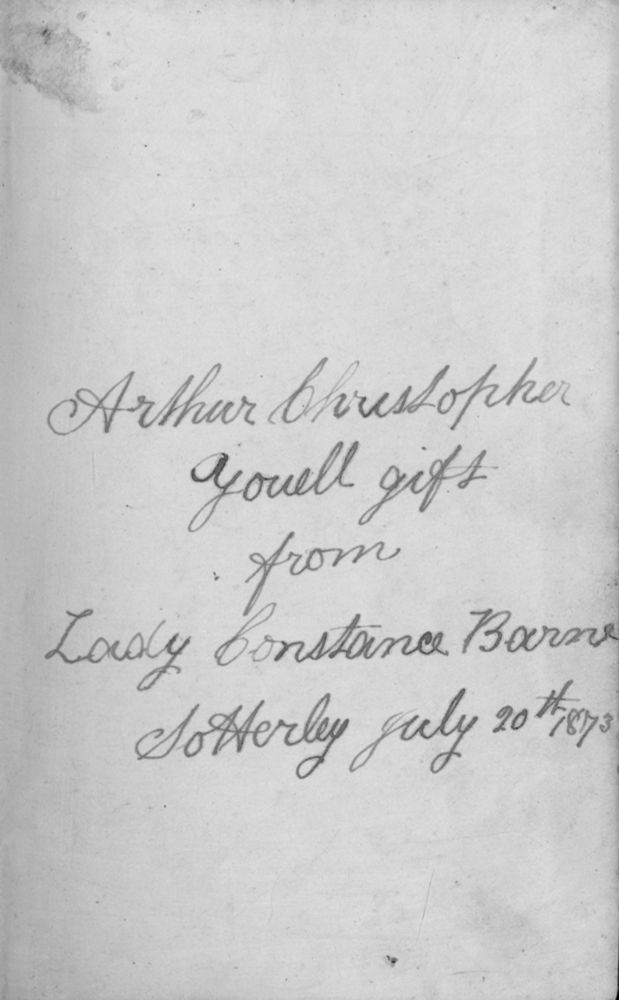 Arthur Christopher
Youell gift
from
Lady Constance Barne
Sotterley july 20th 1873